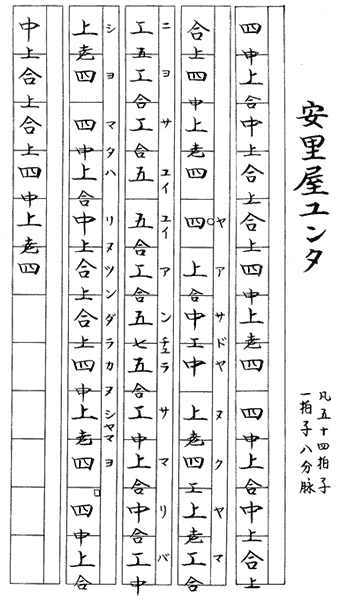 安里屋ユンタ
凡五十四拍子
一拍子八分脉
四中上合中上合上合上四中上老四 四中上合中上合上
ヤアサドヤヌクヤマ
合上四中上老四 四 上合中工中 上老四工上老工合
ニヨサユイユイアンチュラサマリバ
工五工合工合五 五工合五七五合工中上合中合工中
シヨマタハリヌツンダラカヌシャマヨ
上老四 四中上合中上合上合上四中上老四 四中上合
中上合上合上四中上老四